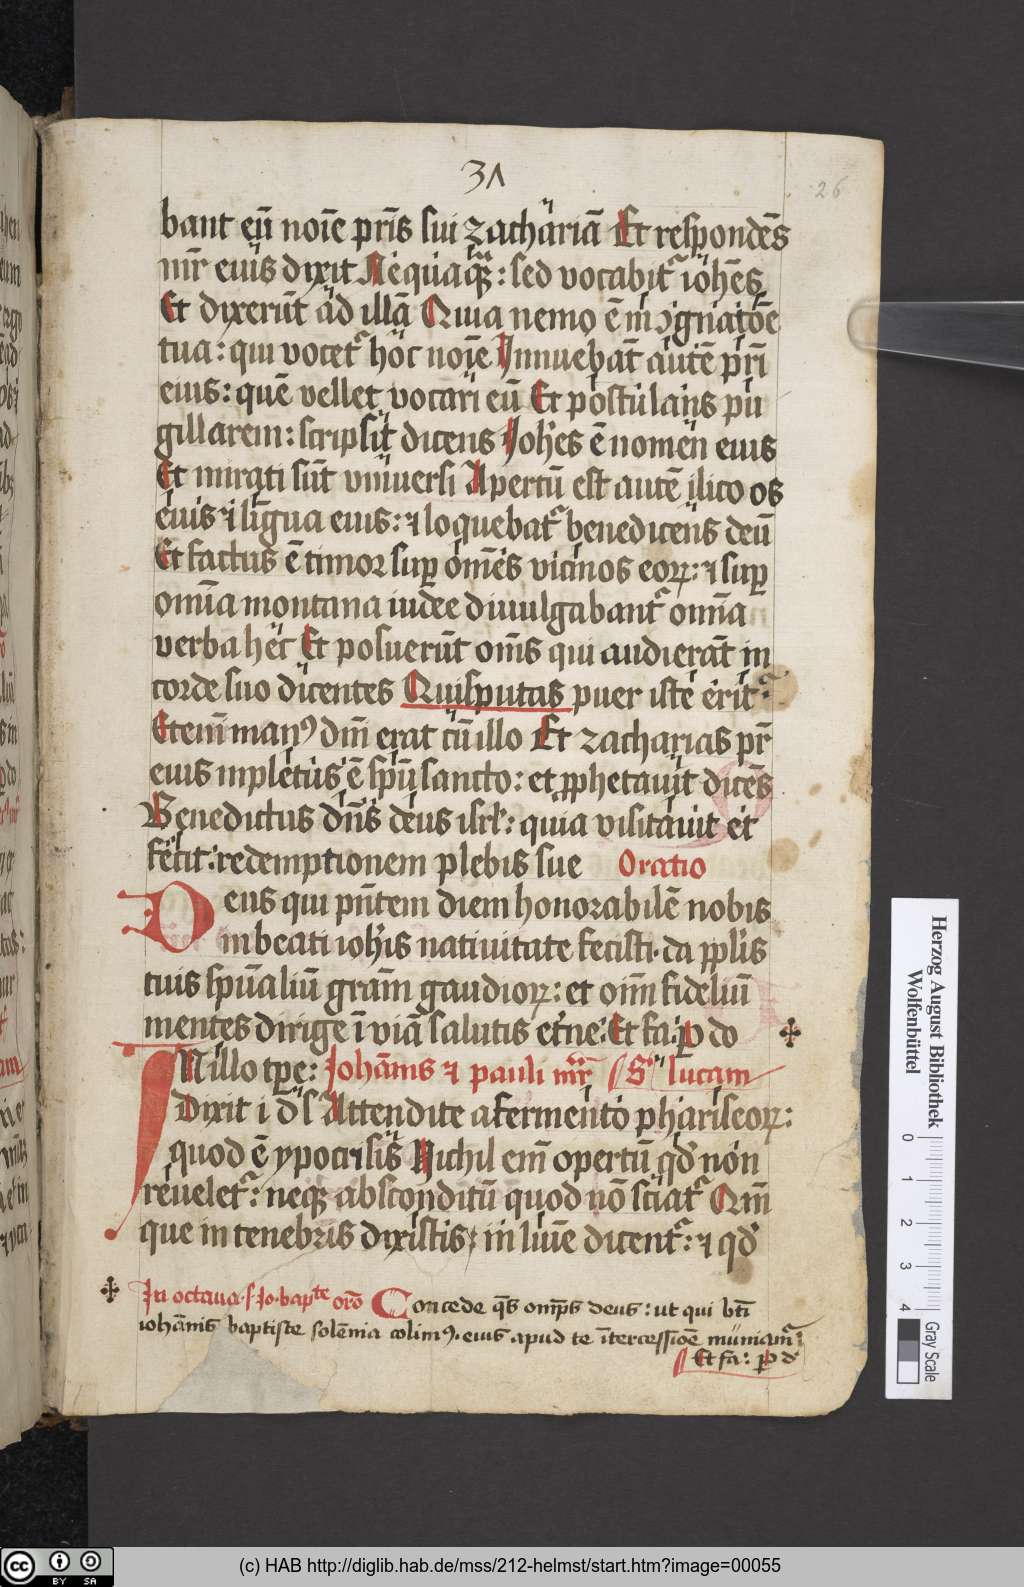 31
26
bant eū noīe pr̄is sui zachariā Et respondēs
mr̄ eius dixit Nequaqʒ̄ : sed vocabitᷣ iohēs
Et dixerūt ad illā Quia nemo ē in ꝯgnatōe
tua : qui vocetᷣ hoc noīe Innuebāt autē pr̄i
eius : quē vellet vocari eū Et postulans pu
gillarem : scripsit dicens Joh̄es ē nomen eius
Et mirati sūt vniuersi Apertū est autē ilico os
eius ⁊ lingua eius : ⁊ loquebatᷣ benedicens deū
Et factus ē timor suꝑ om̄es vicinos eoꝝ : ⁊ suꝑ
om̄ia montana iudee diuulgabantᷣ om̄ia
verba hec Et posuerūt om̄s qui audierāt in
corde suo dicentes Quisputas puer iste erit
Etenī manꝰ dn̄i erat cū illo Et zacharias pr̄
eius inpletus ē spū sancto : et ꝓphetauit dicēs
Benedictus dn̄s deus isrl̄ : quia visitauit et
fecit redemptionem plebis sue Oratio
Deus qui pn̄tem diem honorabilē nobis
in beati ioh̄is natiuitate fecisti· da ppl̄is
tuis spūaliū gr̄am gaudioꝝ : et om̄i fideliū
mentes dirige ī viā salutis et̄ne· Et fa: ꝑ do
IN illo tꝑe : Johānis ⁊ pauli mr̄ S lucam
Dixit i d s Attendite a fermento phariseoꝝ :
quod ē ypocrisis Nichil em̄ opertū qd̄ non
reueletᷣ : neqʒ absconditū quod nō sciatᷣ Qm̄
que in tenebris dixistis in luīe dicentᷣ : ⁊ qd̄
In octaua· s Jo· bapte orō Concede q̄s omp̄s deus : ut qui bt̄i
iohānis baptiste solēnia colimꝰ· eius apud te ītercessiōe muniamᷣ
Et fa: ꝑ d
Herzog August Bibliothek
Wolfenbüttel
0 1 2 3 4
Gray Scale
cc BY SA
(c) HAB http://diglib.hab.de/mss/212-helmst/start.htm?image=00055